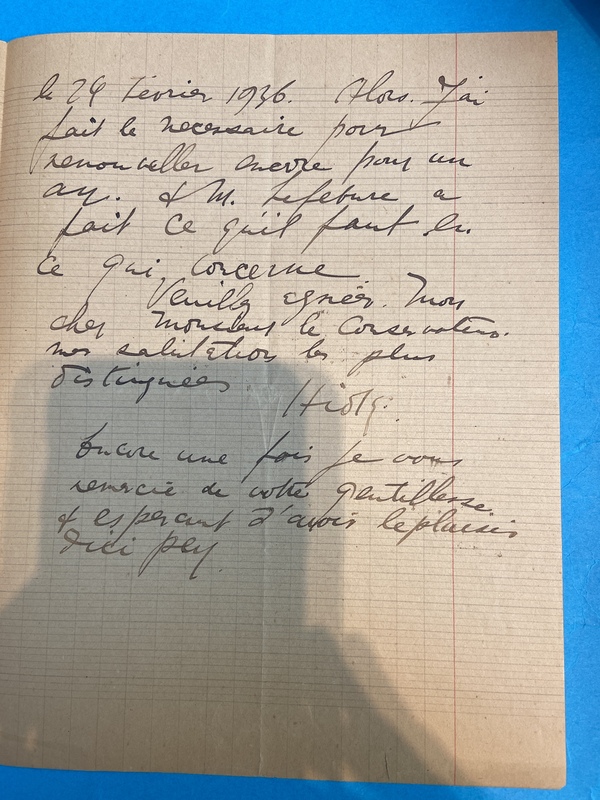 le 24 Février 1936. Alors. J'ai
fait le necessaire pour
renouveller encore pour un
an. & M. Lefebure a
fait ce qu'il faut en
ce qui concerne
Veuillez agréer. Mon
cher Monsieur le Conservateur.
mes salutation les plus
distinguées
Encore une fois je vous
remercie de votre gentillesse
& esperant d'avoir le plaisir
dici peu